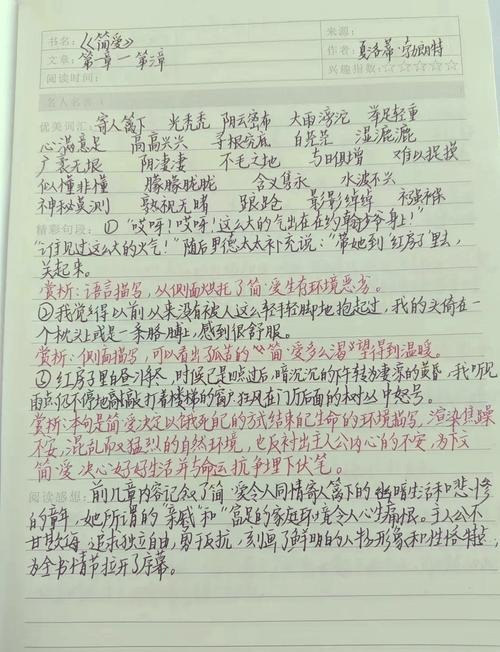 书名：《简爱》
来源：
文章：第一章一第三章
作者：夏洛蒂·勃朗特
阅读时间：
兴趣指数：☆☆☆☆☆
名人名言：
优美词汇：寄人篱下 光秃秃 阴云密布 大雨滂沱 举足轻重
心满意足 高高兴兴 寻根究底 白茫茫 湿漉漉
广袤无垠 阴凄凄 不毛之地 与日俱增 难以捉摸
似懂非懂 朦朦胧胧 含义隽永 水波不兴
神秘莫测 熟视无睹 踉跄 影影绰绰 襁褓
精彩句段：①“哎呀！哎呀！这么大的气出在约翰少爷身上！”
“谁见过这么大的火气！”随后里德太太补充说：“带她到红房子里去，
关起来。
赏析：语言描写，从侧面烘托了简·爱生存环境恶劣。
②我觉得以前从来没有被人这么轻手轻脚地抱起过，我的头倚在
一个枕头上或是一条胳膊上，感到很舒服。
赏析：侧面描写，可以看出孤苦的简·爱多么渴望得到温暖。
③红房子里白昼将尽，时候已是四点过后，暗沉沉的下午转为凄凉的黄昏，我听见
雨点仍不停地敲打着楼梯的窗户，狂风在门厅后面的树丛中怒号。
赏析：本句是简·爱决定以饿死自己的方式结束自己生命的环境描写，渲染焦躁
不安，混乱而又猛烈的自然环境，也反衬出主人公内心的不安，为下文
简·爱决心好好生活并与命运抗争埋下伏笔。
阅读感想：前几章内容记叙了简·爱令人同情寄人篱下的生活和悲惨
的童年，她所谓的“亲戚”和“富足的家庭环境令人心生痛恨。主人公不
甘欺侮，追求独立自由，勇于反抗，刻画了鲜明的人物形象和性格特点，
为全书情节拉开了序幕。